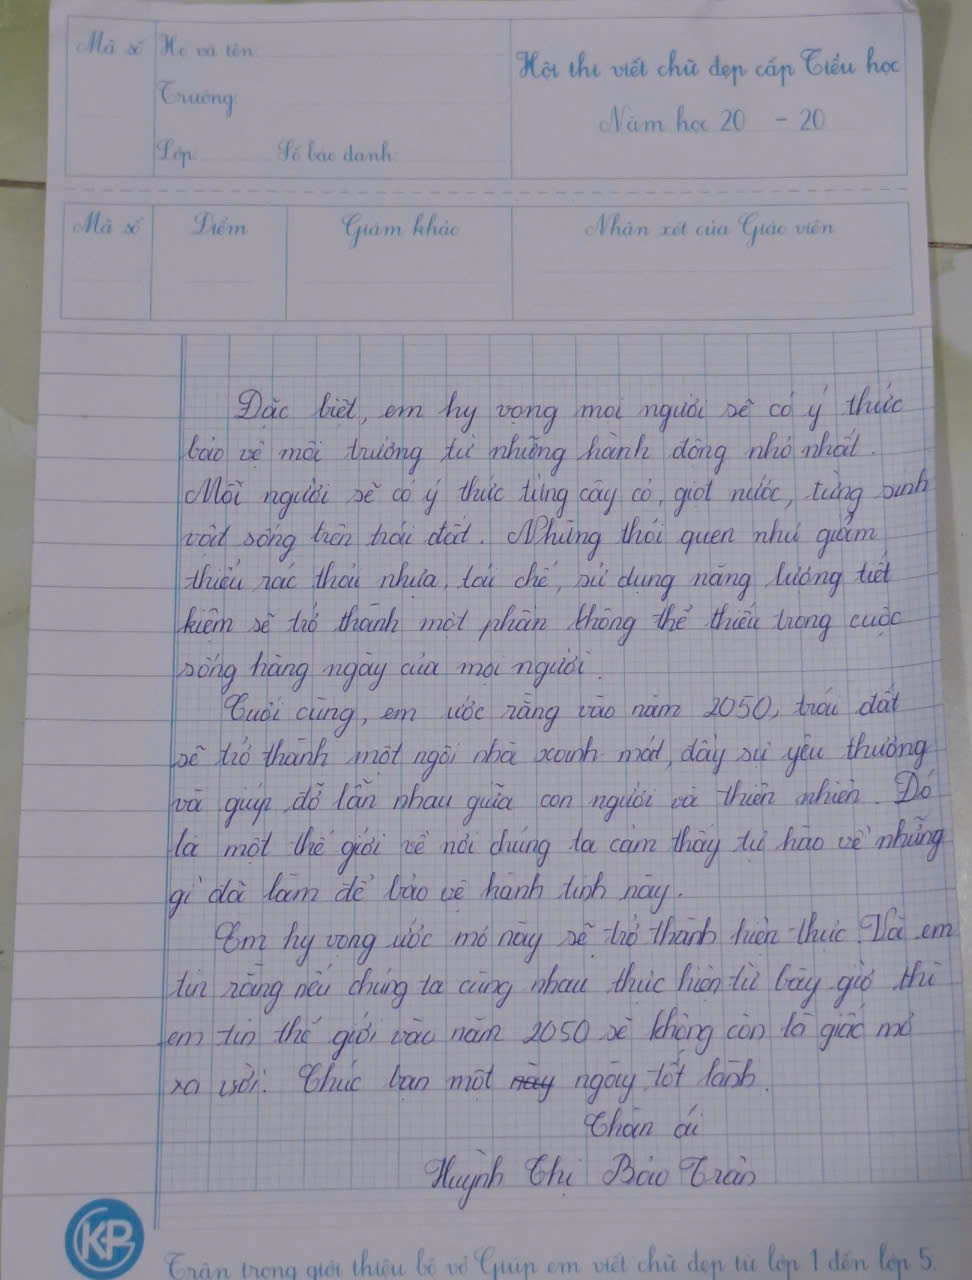 Mã số
Họ và tên:
Trường:
Lớp: Số báo danh:
Hội thi viết chữ đẹp cấp Tiểu học
Năm học 20 - 20
Mã số
Điểm
Giám khảo
Nhận xét của Giáo viên
Đặc biệt, em hy vọng mọi người sẽ có ý thức
bảo vệ môi trường từ những hành động nhỏ nhất.
Mỗi người sẽ có ý thức từng cây cỏ, giọt nước, từng sinh
vật sống trên trái đất. Những thói quen như giảm
thiểu rác thải nhựa, tái chế, sử dụng năng lượng tiết
kiệm sẽ trở thành một phần không thể thiếu trong cuộc
sống hàng ngày của mọi người.
Cuối cùng, em ước rằng vào năm 2050, trái đất
sẽ trở thành một ngôi nhà xanh mát, đầy sự yêu thương
và giúp đỡ lẫn nhau giữa con người và thiên nhiên. Đó
là một thế giới về nơi chúng ta cảm thấy tự hào về những
gì đã làm để bảo vệ hành tinh này.
Em hy vọng ước mơ này sẽ trở thành hiện thực. Và em
tin rằng nếu chúng ta cùng nhau thực hiện từ bây giờ thì
em tin thế giới vào năm 2050 sẽ không còn là giấc mơ
xa vời. Chúc bạn một này ngày tốt lành.
Thân ái
Huỳnh Thị Bảo Trân
KP
Trân trọng giới thiệu bộ vở Giúp em viết chữ đẹp từ lớp 1 đến lớp 5.